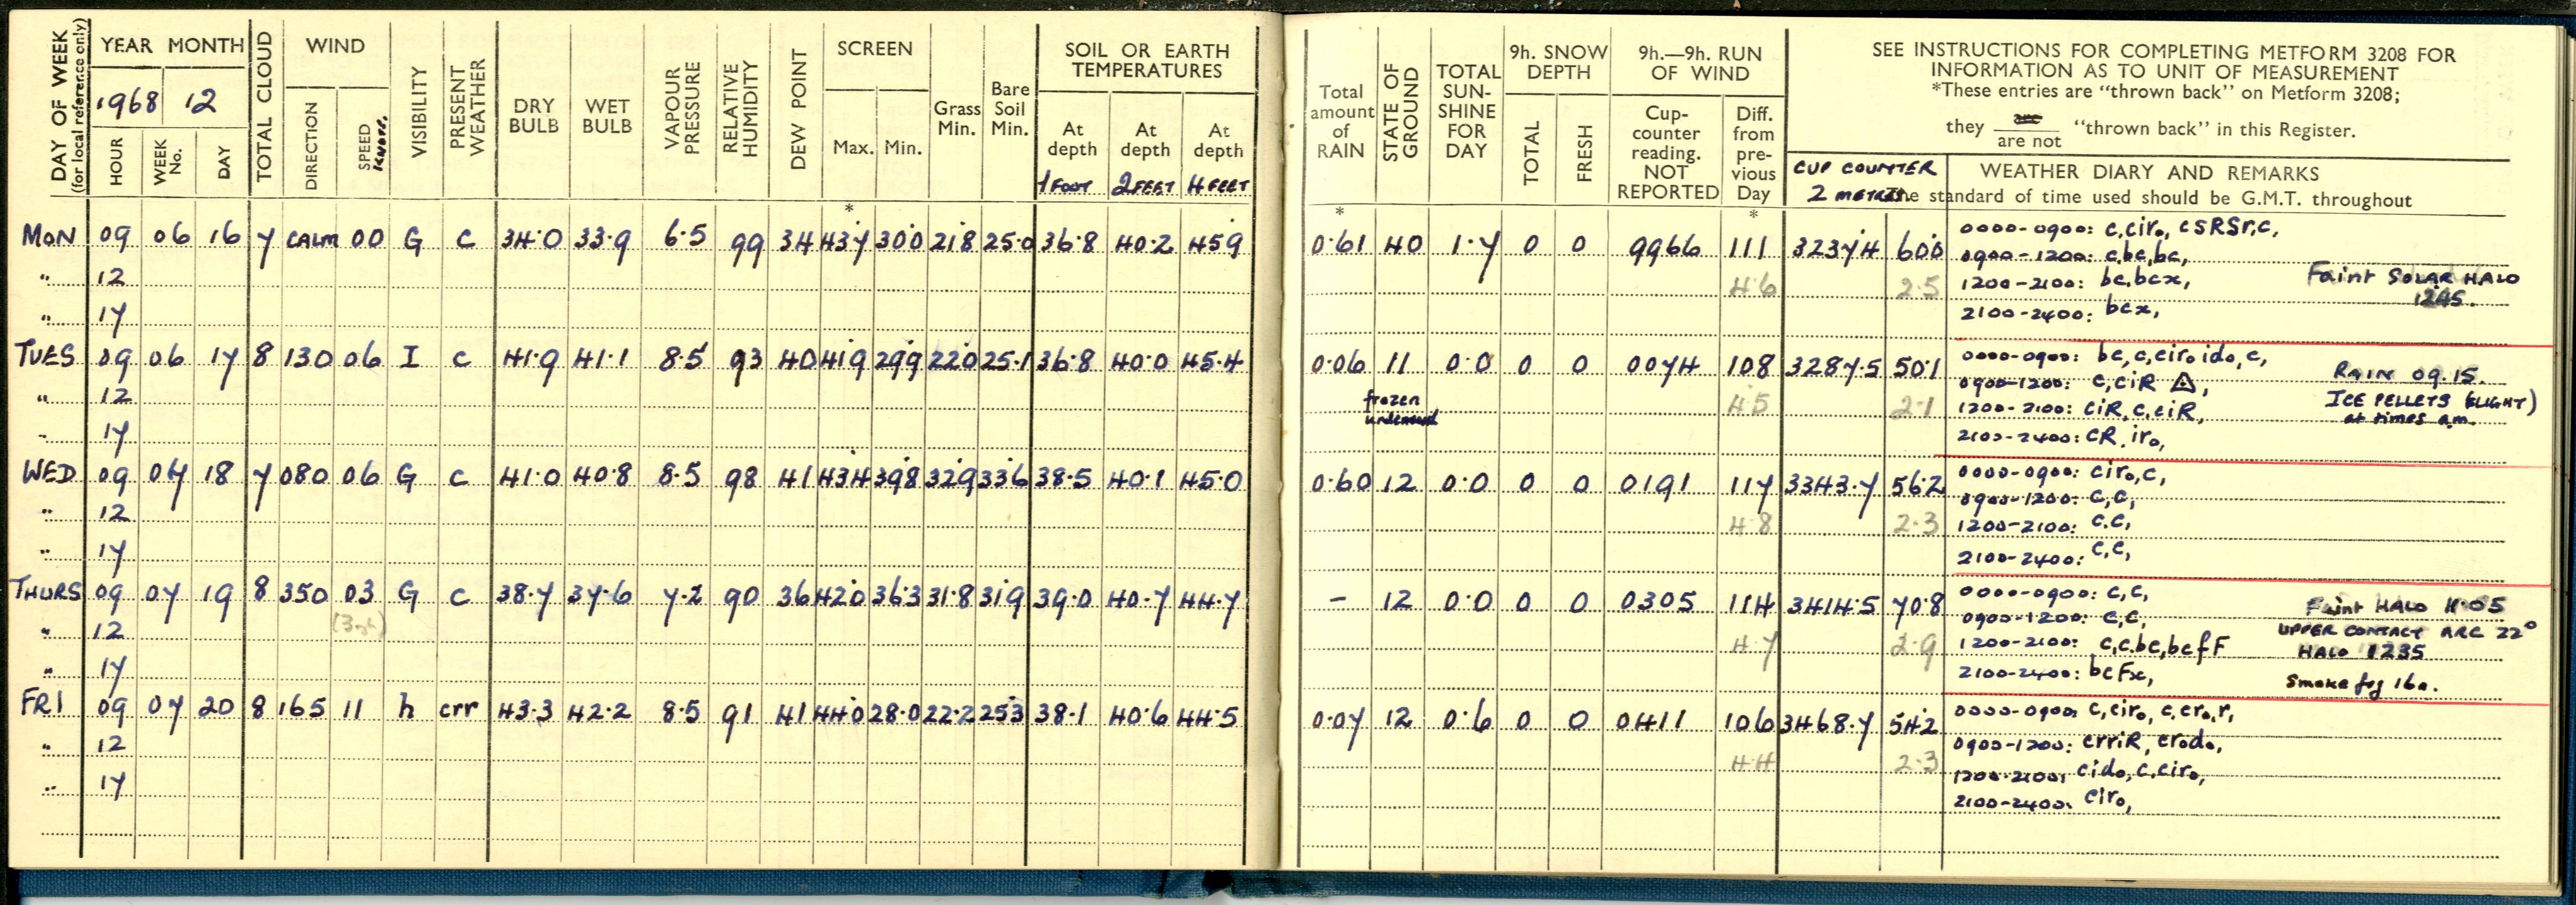 DAY OF WEEK (for local reference only)
YEAR MONTH
1968 12
HOUR WEEK No. DAY
TOTAL CLOUD
WIND
DIRECTION SPEED KNOTS.
VISIBILITY
PRESENT WEATHER
DRY BULB
WET BULB
VAPOUR PRESSURE
RELATIVE HUMIDITY
DEW POINT
SCREEN
Max. Min.
Grass Min.
Bare Soil Min.
SOIL OR EARTH TEMPERATURES
At depth 1 FOOT
At depth 2 FEET
At depth 4 FEET
Total amount of RAIN
STATE OF GROUND
TOTAL SUN-SHINE FOR DAY
9h. SNOW DEPTH
TOTAL FRESH
9h.—9h. RUN OF WIND
Cup-counter reading. NOT REPORTED
Diff. from pre-vious Day
SEE INSTRUCTIONS FOR COMPLETING METFORM 3208 FOR
INFORMATION AS TO UNIT OF MEASUREMENT
*These entries are "thrown back" on Metform 3208;
they are / are not "thrown back" in this Register.
CUP COUNTER
2 METRES
WEATHER DIARY AND REMARKS
The standard of time used should be G.M.T. throughout
* * *
MON 09 06 16 7 CALM 00 G c 34.0 33.9 6.5 99 34 43.7 30.0 21.8 25.0 36.8 40.2 45.9 0.61 40 1.7 0 0 9966 111 3237.4 60.0 0000-0900: c,ciro, csRSr,c,
0900-1200: c,bc,bc,
" 12 4.6 2.5 1200-2100: bc,bcx, Faint SOLAR HALO
1245.
" 17 2100-2400: bcx,
TUES 09 06 17 8 130 06 I c 41.9 41.1 8.5 93 40 41.9 29.9 22.0 25.1 36.8 40.0 45.4 0.06 11 0.0 0 0 0074 108 3287.5 50.1 0000-0900: bc,c,ciro ido,c,
0900-1200: c,ciR △, RAIN 09.15.
" 12 frozen 4.5 2.1 1200-2100: ciR,c,ciR, ICE PELLETS (SLIGHT)
at times a.m.
" 17 2100-2400: cR, iro,
WED 09 07 18 7 080 06 G c 41.0 40.8 8.5 98 41 43.4 39.8 32.9 33.6 38.5 40.1 45.0 0.60 12 0.0 0 0 0191 117 3343.7 56.2 0000-0900: ciro,c,
0900-1200: c,c,
" 12 4.8 2.3 1200-2100: c.c,
" 17 2100-2400: c,c,
THURS 09 07 19 8 350 03 G c 38.7 37.6 7.2 90 36 42.0 36.3 31.8 31.9 39.0 40.7 44.7 - 12 0.0 0 0 0305 114 3414.5 70.8 0000-0900: c,c,
0900-1200: c,c, Faint HALO 11.05
" 12 4.7 2.9 1200-2100: c,c.bc,bcfF UPPER CONTACT ARC 22°
HALO 1235
" 17 2100-2400: bcFx, Smoke fog 16a.
FRI 09 07 20 8 165 11 h crr 43.3 42.2 8.5 91 41 44.0 28.0 22.2 25.3 38.1 40.6 44.5 0.07 12 0.6 0 0 0411 106 3468.7 54.2 0000-0900: c,ciro, c,cro,r,
" 12 0900-1200: crriR, crodo,
4.4 2.3 1200-2100: cido,c,ciro,
" 17 2100-2400: ciro,